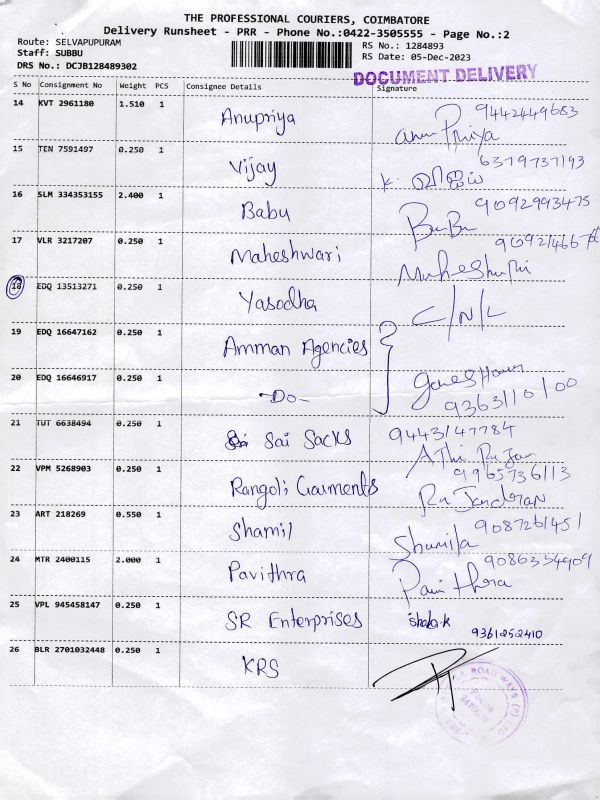 THE PROFESSIONAL COURIERS, COIMBATORE
Delivery Runsheet - PRR - Phone No.:0422-3505555 - Page No.:2
Route: SELVAPUPURAM
Staff: SUBBU
DRS No.: DCJB128489302
RS No.: 1284893
RS Date: 05-Dec-2023
DOCUMENT DELIVERY
S No Consignment No Weight PCS Consignee Details Signature
14 KVT 2961180 1.510 1 Anupriya 9442449683
Anu Priya
15 TEN 7591497 0.250 1 Vijay 6379737193
K. விஜய்
16 SLM 334353155 2.400 1 Babu 9092993475
BaBu
17 VLR 3217207 0.250 1 Maheshwari
18 EDQ 13513271 0.250 1 Yasodha C/N/L
19 EDQ 16647162 0.250 1 Amman Agencies
20 EDQ 16646917 0.250 1 -Do- 9363110100
21 TUT 6638494 0.250 1 Sai Sacks 9443147784
22 VPM 5268903 0.250 1 Rangoli Garments 9965736113
23 ART 218269 0.550 1 Shamil 9087261451
Shamila
24 MTR 2400115 2.000 1 Pavithra 9086354909
Pavithra
25 VPL 945458147 0.250 1 SR Enterprises
9361252410
26 BLR 2701032448 0.250 1 KRS
ROAD WAYS (P) LTD